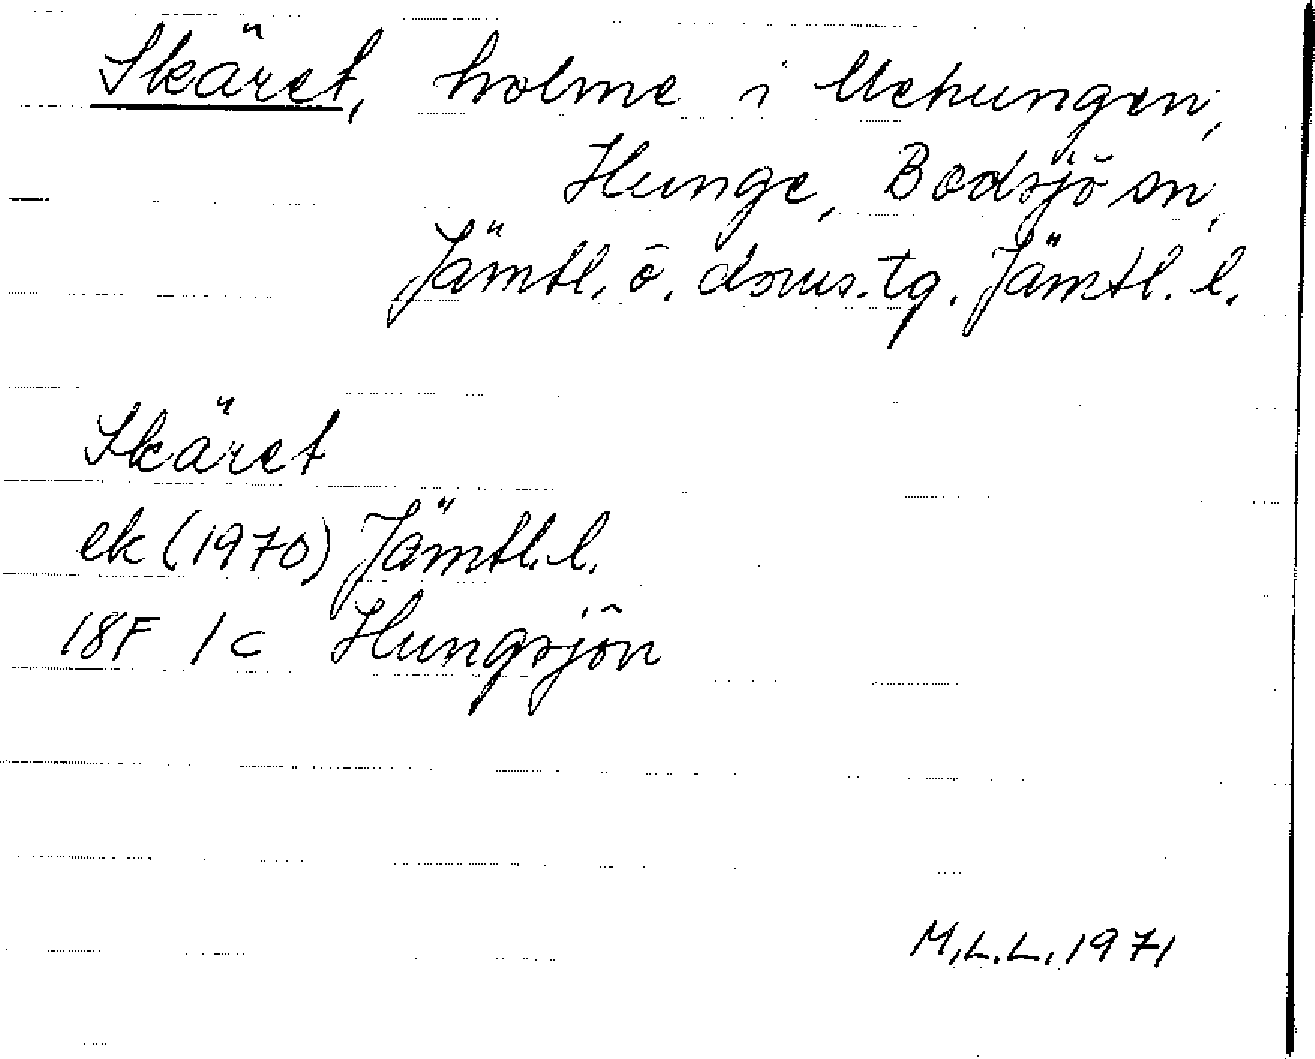 Skäret, holme i Mehungen,
Hunge, Bodsjö sn,
Jämtl. ö. doms.tg. Jämtl. l.
Skäret
ek (1970) Jämtl. l.
18F 1c Hungsjön
M.L.L. 1971